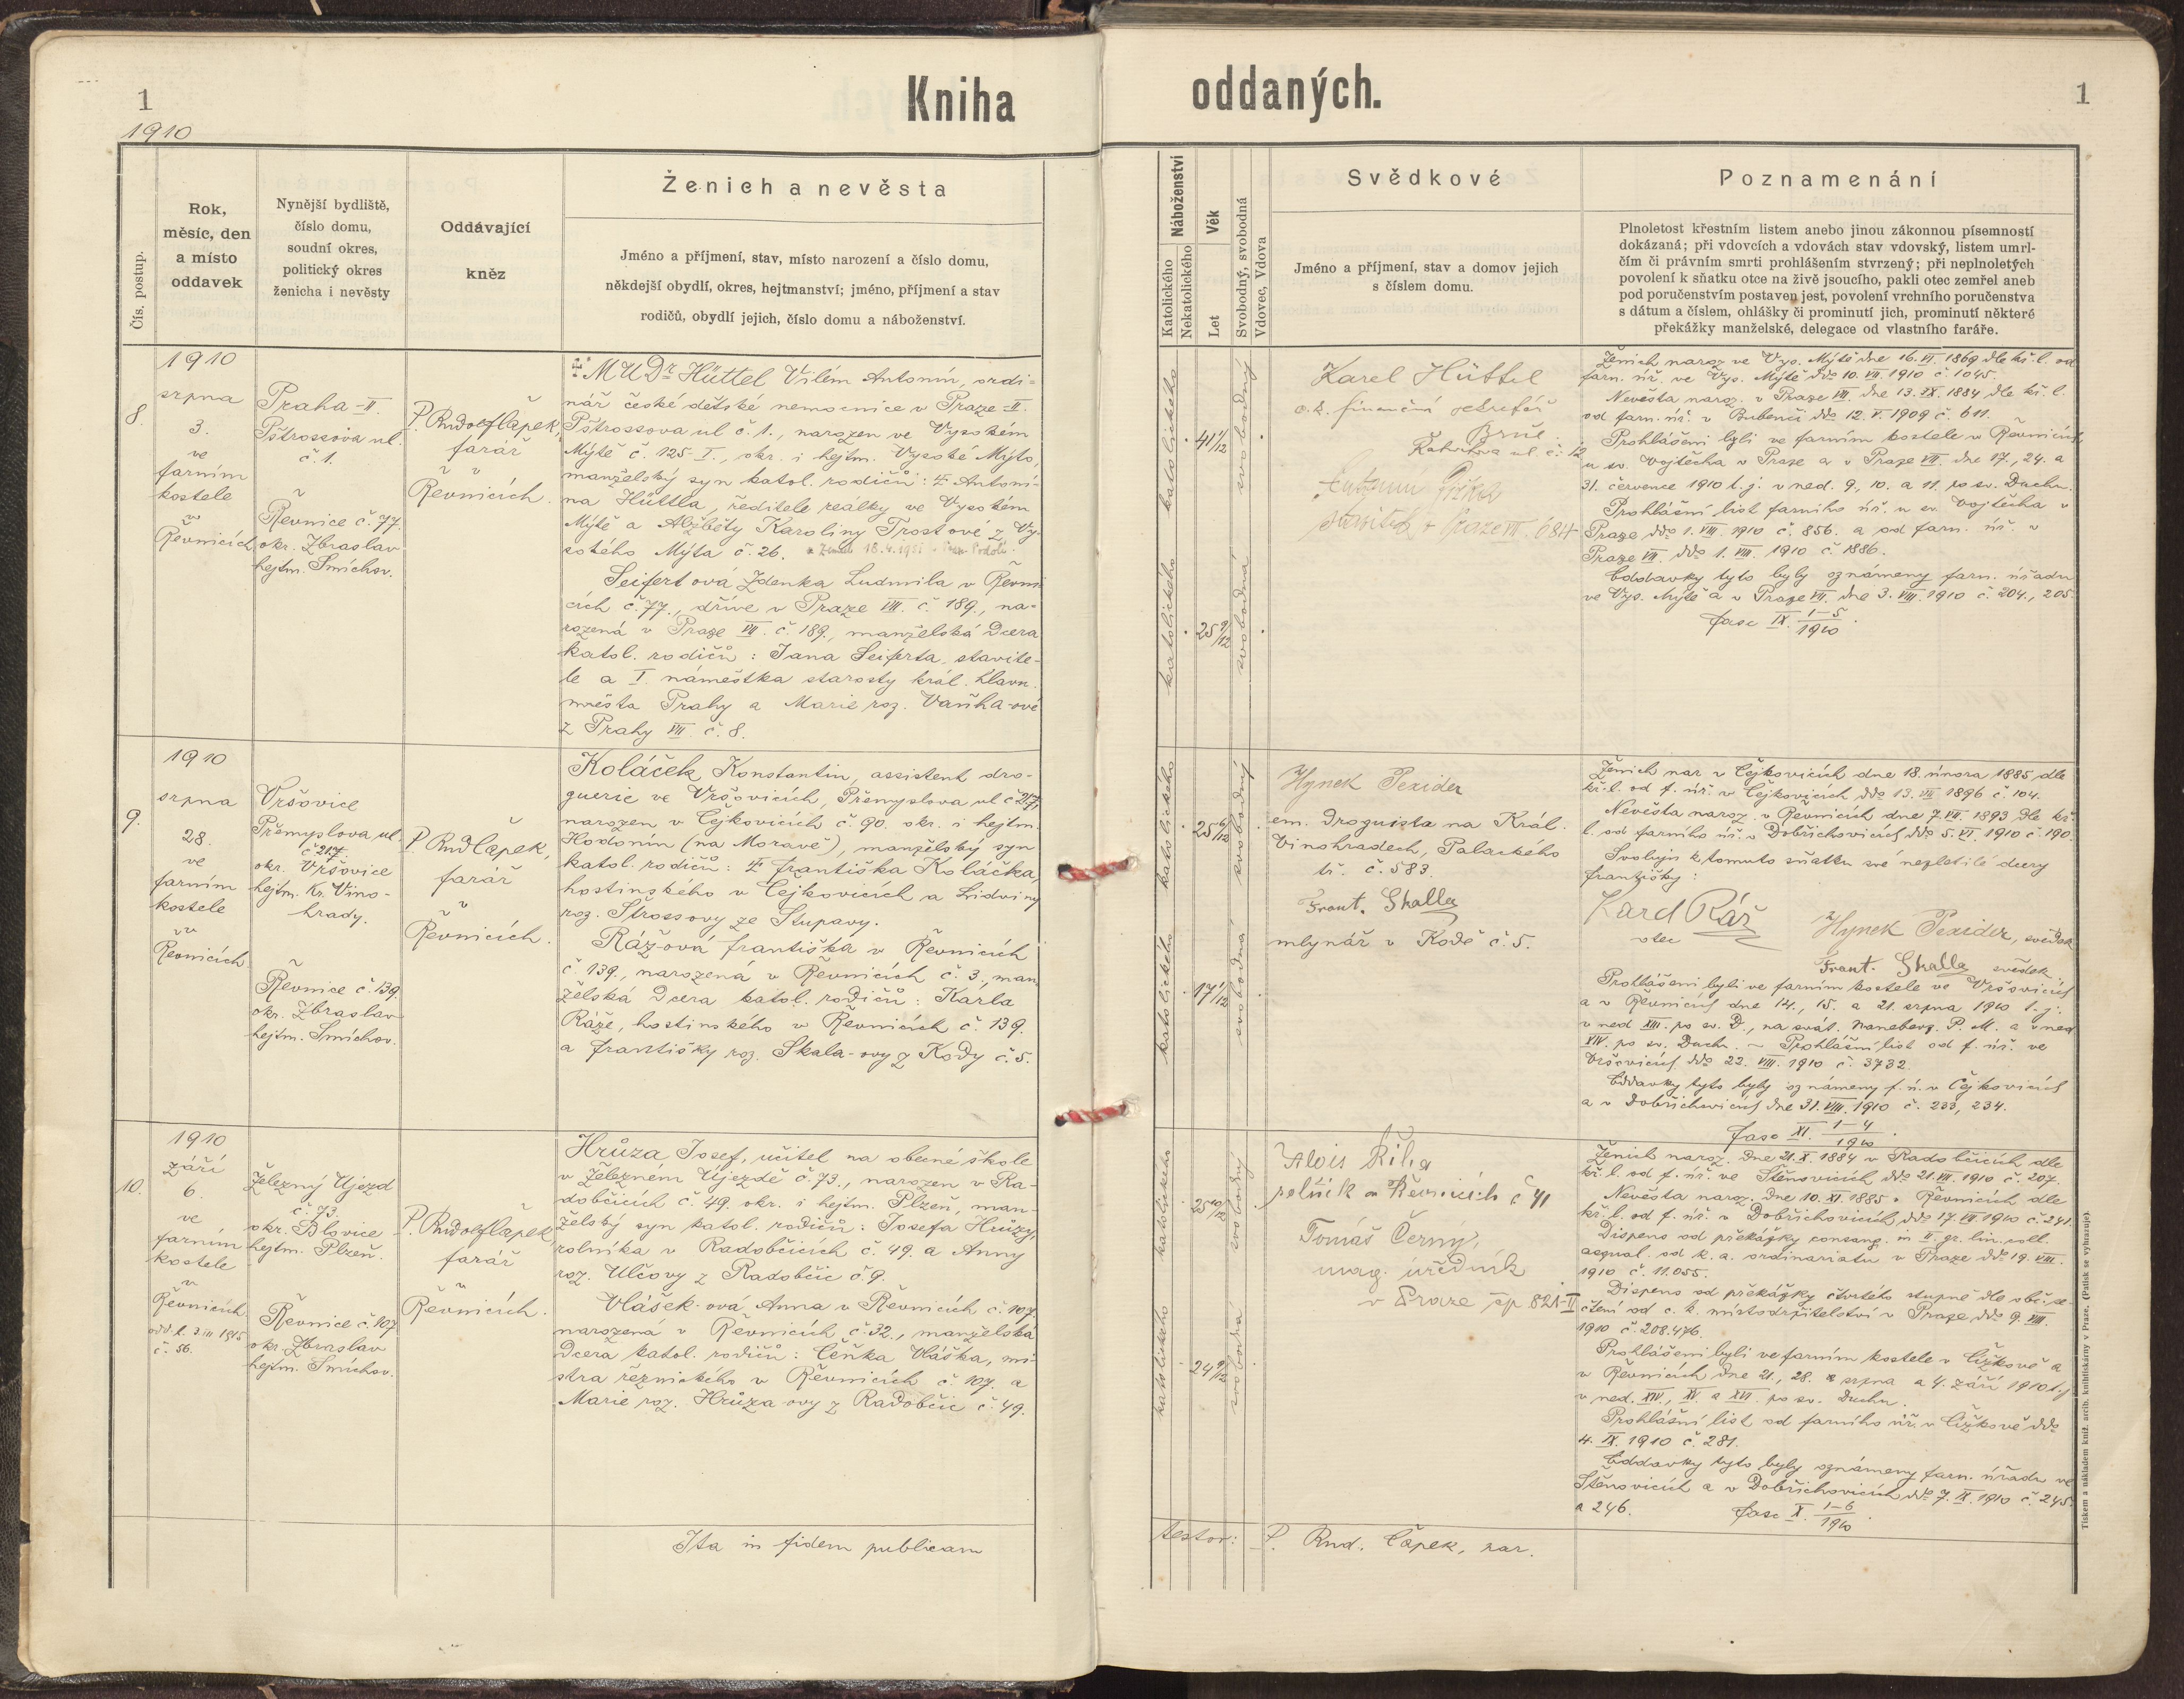 1
1910
Kniha
oddaných.
1
Čís. postup.
Rok,
měsíc, den
a místo
oddavek
Nynější bydliště,
číslo domu,
soudní okres,
politický okres
ženicha i nevěsty
Oddávající
kněz
Ženich a nevěsta
Jméno a příjmení, stav, místo narození a číslo domu,
někdejší obydlí, okres, hejtmanství; jméno, příjmení a stav
rodičů, obydlí jejich, číslo domu a náboženství.
Náboženství
Katolického
Nekatolického
Věk
Let
Svobodný, svobodná
Vdovec, Vdova
Svědkové
Jméno a příjmení, stav a domov jejich
s číslem domu.
Poznamenání
Plnoletost křestním listem anebo jinou zákonnou písemností
dokázaná; při vdovcích a vdovách stav vdovský, listem umrl-
čím či právním smrti prohlášením stvrzený; při neplnoletých
povolení k sňatku otce na živě jsoucího, pakli otec zemřel aneb
pod poručenstvím postaven jest, povolení vrchního poručenstva
s dátum a číslem, ohlášky či prominutí jich, prominutí některé
překážky manželské, delegace od vlastního faráře.
8.
1910
srpna
3.
ve
farním
kostele
v
Řevnicích
Praha-II.
Pštrossova ul.
č. 1.
Řevnice č. 77.
okr. Zbraslav
hejtm. Smíchov.
P. Rudolf Čapek,
farář
v
Řevnicích.
MUDr Hüttel Vilém Antonín, ordi-
nář české dětské nemocnice v Praze-II.
Pštrossova ul č. 1., narozen ve Vysokém
Mýtě č. 125-I., okr. i hejtm. Vysoké Mýto,
manželský syn katol. rodičů: Antoní-
na Hüttla, ředitele reálky ve Vysokém
Mýtě a Alžběty Karoliny Trostové z Vy-
sokého Mýta č. 26.
Seifertová Zdenka Ludmila v Řevni-
cích č. 77., dříve v Praze VII. č. 189., na-
rozená v Praze VII. č. 189., manželská dcera
katol. rodičů: Jana Seiferta, stavite-
le a I. náměstka starosty král. hlavn.
města Prahy a Marie roz. Vaňha-ové
z Prahy VII. č. 8.
katolického
41 1/12
svobodný
katolického
25 9/12
svobodná
Karel Hüttel
c. k. finanční sekretář
č. 12
Praze VII.
Ženich naroz. ve Vys. Mýtě dne 16. VI. 1869 dle kř. l. od
farn. úř. ve Vys. Mýtě ddo 10. VII. 1910 č. 1045.
Nevěsta naroz. v Praze VII. dne 13. XI. 1884 dle kř. l.
od farn. úř. v Bubenči ddo 12. V. 1909 č. 611.
Prohlášeni byli ve farním kostele v Řevnicích,
u sv. Vojtěcha v Praze a v Praze VII. dne 17., 24. a
31. července 1910 t. j. v ned. 9., 10. a 11. po sv. Duchu.
Prohlášní list farního úř. u sv. Vojtěcha v
Praze ddo 1. VIII. 1910 č. 856. a od farn. úř. v
Praze VII. ddo 1. VIII. 1910 č. 1886.
Oddavky tyto byly oznámeny farn. úřadu
ve Vys. Mýtě a v Praze VII. dne 3. VIII. 1910 č. 204., 205.
fasc IX. 1-5/1910.
9.
1910
srpna
28.
ve
farním
kostele
v
Řevnicích
Vršovice
Přemyslova ul.
č. 217.
okr. Vršovice
hejtm. Kr. Vino-
hrady.
Řevnice č. 139.
okr. Zbraslav
hejtm. Smíchov.
P. Rud Čapek,
farář
v
Řevnicích.
Koláček Konstantin, assistent dro-
guerie ve Vršovicích, Přemyslova ul č 217,
narozen v Čejkovicích č. 90. okr. i hejtm.
Hodonín (na Moravě), manželský syn
katol. rodičů: Františka Koláčka,
hostinského v Čejkovicích a Lidviny
roz. Štrossovy ze Stupavy.
Rážová Františka v Řevnicích
č. 139., narozená v Řevnicích č. 3., man-
želská dcera katol. rodičů: Karla
Ráže, hostinského v Řevnicích č. 139.
a Františky roz. Skala-ovy z Kody č. 5.
katolického
25 6/12
svobodný
katolického
17 1/12
svobodná
Hynek Pexider
em. droguista na Král.
Vinohradech, Palackého
tř. č. 583.
Frant. Skalla
mlynář v Kodě č. 5.
Ženich nar. v Čejkovicích dne 18. února 1885, dle
kř. l. od f. úř. v Čejkovicích ddo 13. VII. 1896 č. 104.
Nevěsta naroz. v Řevnicích dne 7. VII. 1893 dle kř.
l. od farního úř. v Dobřichovicích ddo 5. VI. 1910 č. 190.
Svoluji k tomuto sňatku své nezletilé dcery
Františky:
Karel Ráž
otec
Hynek Pexider, svědek
Frant. Skalla svědek.
Prohlášeni byli ve farním kostele ve Vršovicích
a v Řevnicích dne 14., 15. a 21. srpna 1910 t. j.
v ned XIII. po sv. D., na svát. Nanebevz. P. M. a v ned
XIV. po sv. Duch. - Prohlášní list od f. úř. ve
Vršovicích ddo 22. VIII. 1910 č. 3732.
Oddavky tyto byly oznámeny f. ú. v Čejkovicích
a v Dobřichovicích dne 31. VIII. 1910 č. 233, 234.
fasc XI. 1-4/1910.
10.
1910
září
6.
ve
farním
kostele
v
Řevnicích
odd. l. 3. III 1915
č. 56.
Železný Újezd
č. 73.
okr. Blovice
hejtm. Plzeň.
Řevnice č. 107
okr. Zbraslav
hejtm. Smíchov.
P. Rudolf Čapek
farář
v
Řevnicích.
Hrůza Josef, učitel na obecné škole
v Železném Újezdě č. 73., narozen v Ra-
dobčicích č. 49. okr. i hejtm. Plzeň, man-
želský syn katol. rodičů: Josefa Hrůzy,
rolníka v Radobčicích č. 49. a Anny
roz. Ulčovy z Radobčic č. 9.
Vlášek-ová Anna v Řevnicích č. 107.
narozená v Řevnicích č. 32., manželská
dcera katol. rodičů: Čeňka Vláška, mi-
stra řeznického v Řevnicích č. 107. a
Marie roz. Hrůza-ovy z Radobčic č. 49.
katolického
25 10/12
svobodný
katolického
24 9/12
svobodná
Alois Říha
rolník v Řevnicích č 41
Tomáš Černý,
mag. úředník
v Praze čp 821-II
Ženich naroz. dne 21. X. 1884 v Radobčicích dle
kř. l. od f. úř. ve Štěnovicích ddo 21. VII. 1910 č. 207.
Nevěsta naroz. dne 10. XI. 1885 v Řevnicích dle
kř. l. od f. úř. v Dobřichovicích ddo 17. VII. 1910 č. 241.
Dispens od překážky consang. in II. gr. lin. coll.
aequal. od k. a. ordinariatu v Praze ddo 19. VIII.
1910 č. 11.055.
Dispens od překážky čtvrtého stupně dle obč. se-
čtení od c. k. místodržitelství v Praze ddo 9. VIII.
1910 č. 208.476.
Prohlášeni byli ve farním kostele v Čížkově a
v Řevnicích dne 21., 28. srpna a 4. září 1910 t. j.
v ned. XIV., XV. a XVI. po sv. Duchu.
Prohlášní list od farního úř. v Čížkově ddo
4. IX. 1910 č. 281.
Oddavky tyto byly oznámeny farn. úřadu ve
Štěnovicích a v Dobřichovicích ddo 7. IX. 1910 č. 245.
a 246.
fasc X. 1-6/1910.
Ita in fidem publicam
testor: P. Rud. Čapek, par.
Tiskem a nákladem kníž. arcib. knihtiskárny v Praze. (Patisk se vyhrazuje).